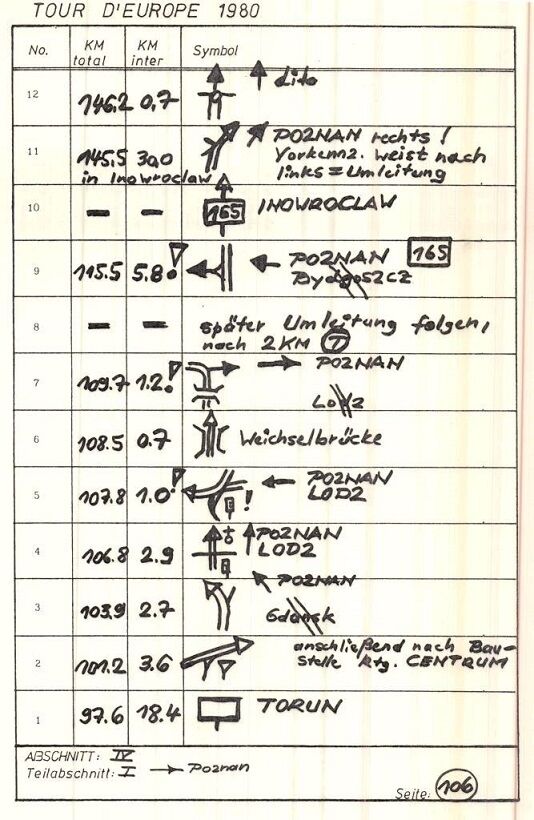 TOUR D'EUROPE 1980
No. KM total KM inter Symbol
12 146.2 0,7 dito
11 145,5 30,0 POZNAN rechts!
Vorkennz. weist nach
in Inowroclaw links = Umleitung
10 — — 165 INOWROCLAW
9 115.5 5.8 ! POZNAN 165
Bydgoszcz
8 — — später Umleitung folgen,
nach 2 KM T
7 109.7 1.2 ! POZNAN
Lodz
6 108.5 0.7 Weichselbrücke
5 107.8 1.0 ! ! POZNAN
LODZ
4 106.8 2.9 POZNAN
LODZ
3 103.9 2.7 POZNAN
Gdansk
2 101.2 3.6 anschließend nach Bau-
stelle Rtg. CENTRUM
1 97.6 18.4 TORUN
ABSCHNITT: IV
Teilabschnitt: I → Poznan
Seite: 106